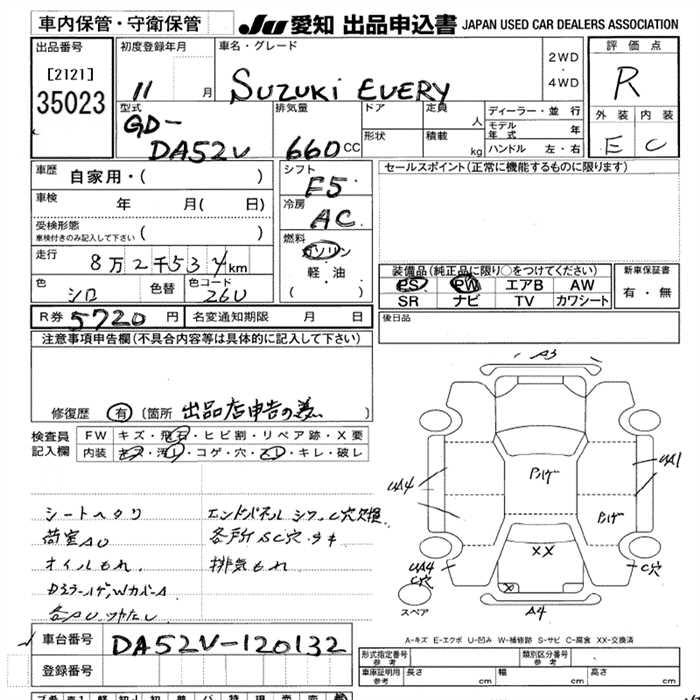 車内保管・守衛保管
JU 愛知 出品申込書 JAPAN USED CAR DEALERS ASSOCIATION
出品番号
[2121]
35023
初度登録年月
11 月
車名・グレード
SUZUKI EVERY
2WD
・
4WD
評価点
R
外装 内装
E C
型式
GD-
DA52V
排気量
660 cc
ドア
形状
定員 人
積載 kg
ディーラー・並行
モデル年式 年
ハンドル 左・右
車歴 自家用・( )
車検 年 月( 日)
受検形態
車検付きのみ記入して下さい ( )
走行 8万2千534km
色 シロ 色替 色コード 26U
シフト
F5
冷房
AC
燃料
ガソリン
軽・油
( )
セールスポイント(正常に機能するものに限ります)
装備品(純正品に限り○をつけてください)
PS PW エアB AW
SR ナビ TV カワシート
新車保証書
有・無
R券 5720 円 名変通知期限 月 日
後日品
注意事項申告欄(不具合内容等は具体的に記入して下さい)
修復歴 有 〔箇所 出品店申告の為 〕
検査員
記入欄
FW キズ・飛石・ヒビ割・リペア跡・X要
内装 キズ・汚レ・コゲ・穴・スレ・キレ・破レ
シートヘタリ
荷室AU
オイルもれ
エンドパネル
各所SC穴・サキ
排気もれ
A3
UA4
UA1
ハゲ
ハゲ
XX
X
UA4
C穴
C穴
A4
スペア
A-キズ E-エクボ U-凹み W-補修跡 S-サビ C-腐食 XX-交換済
車台番号 DA52V-120132
登録番号
形式指定番号
参考
類別区分番号
参考
車庫証明用
参考
長さ cm 幅 cm 高さ cm